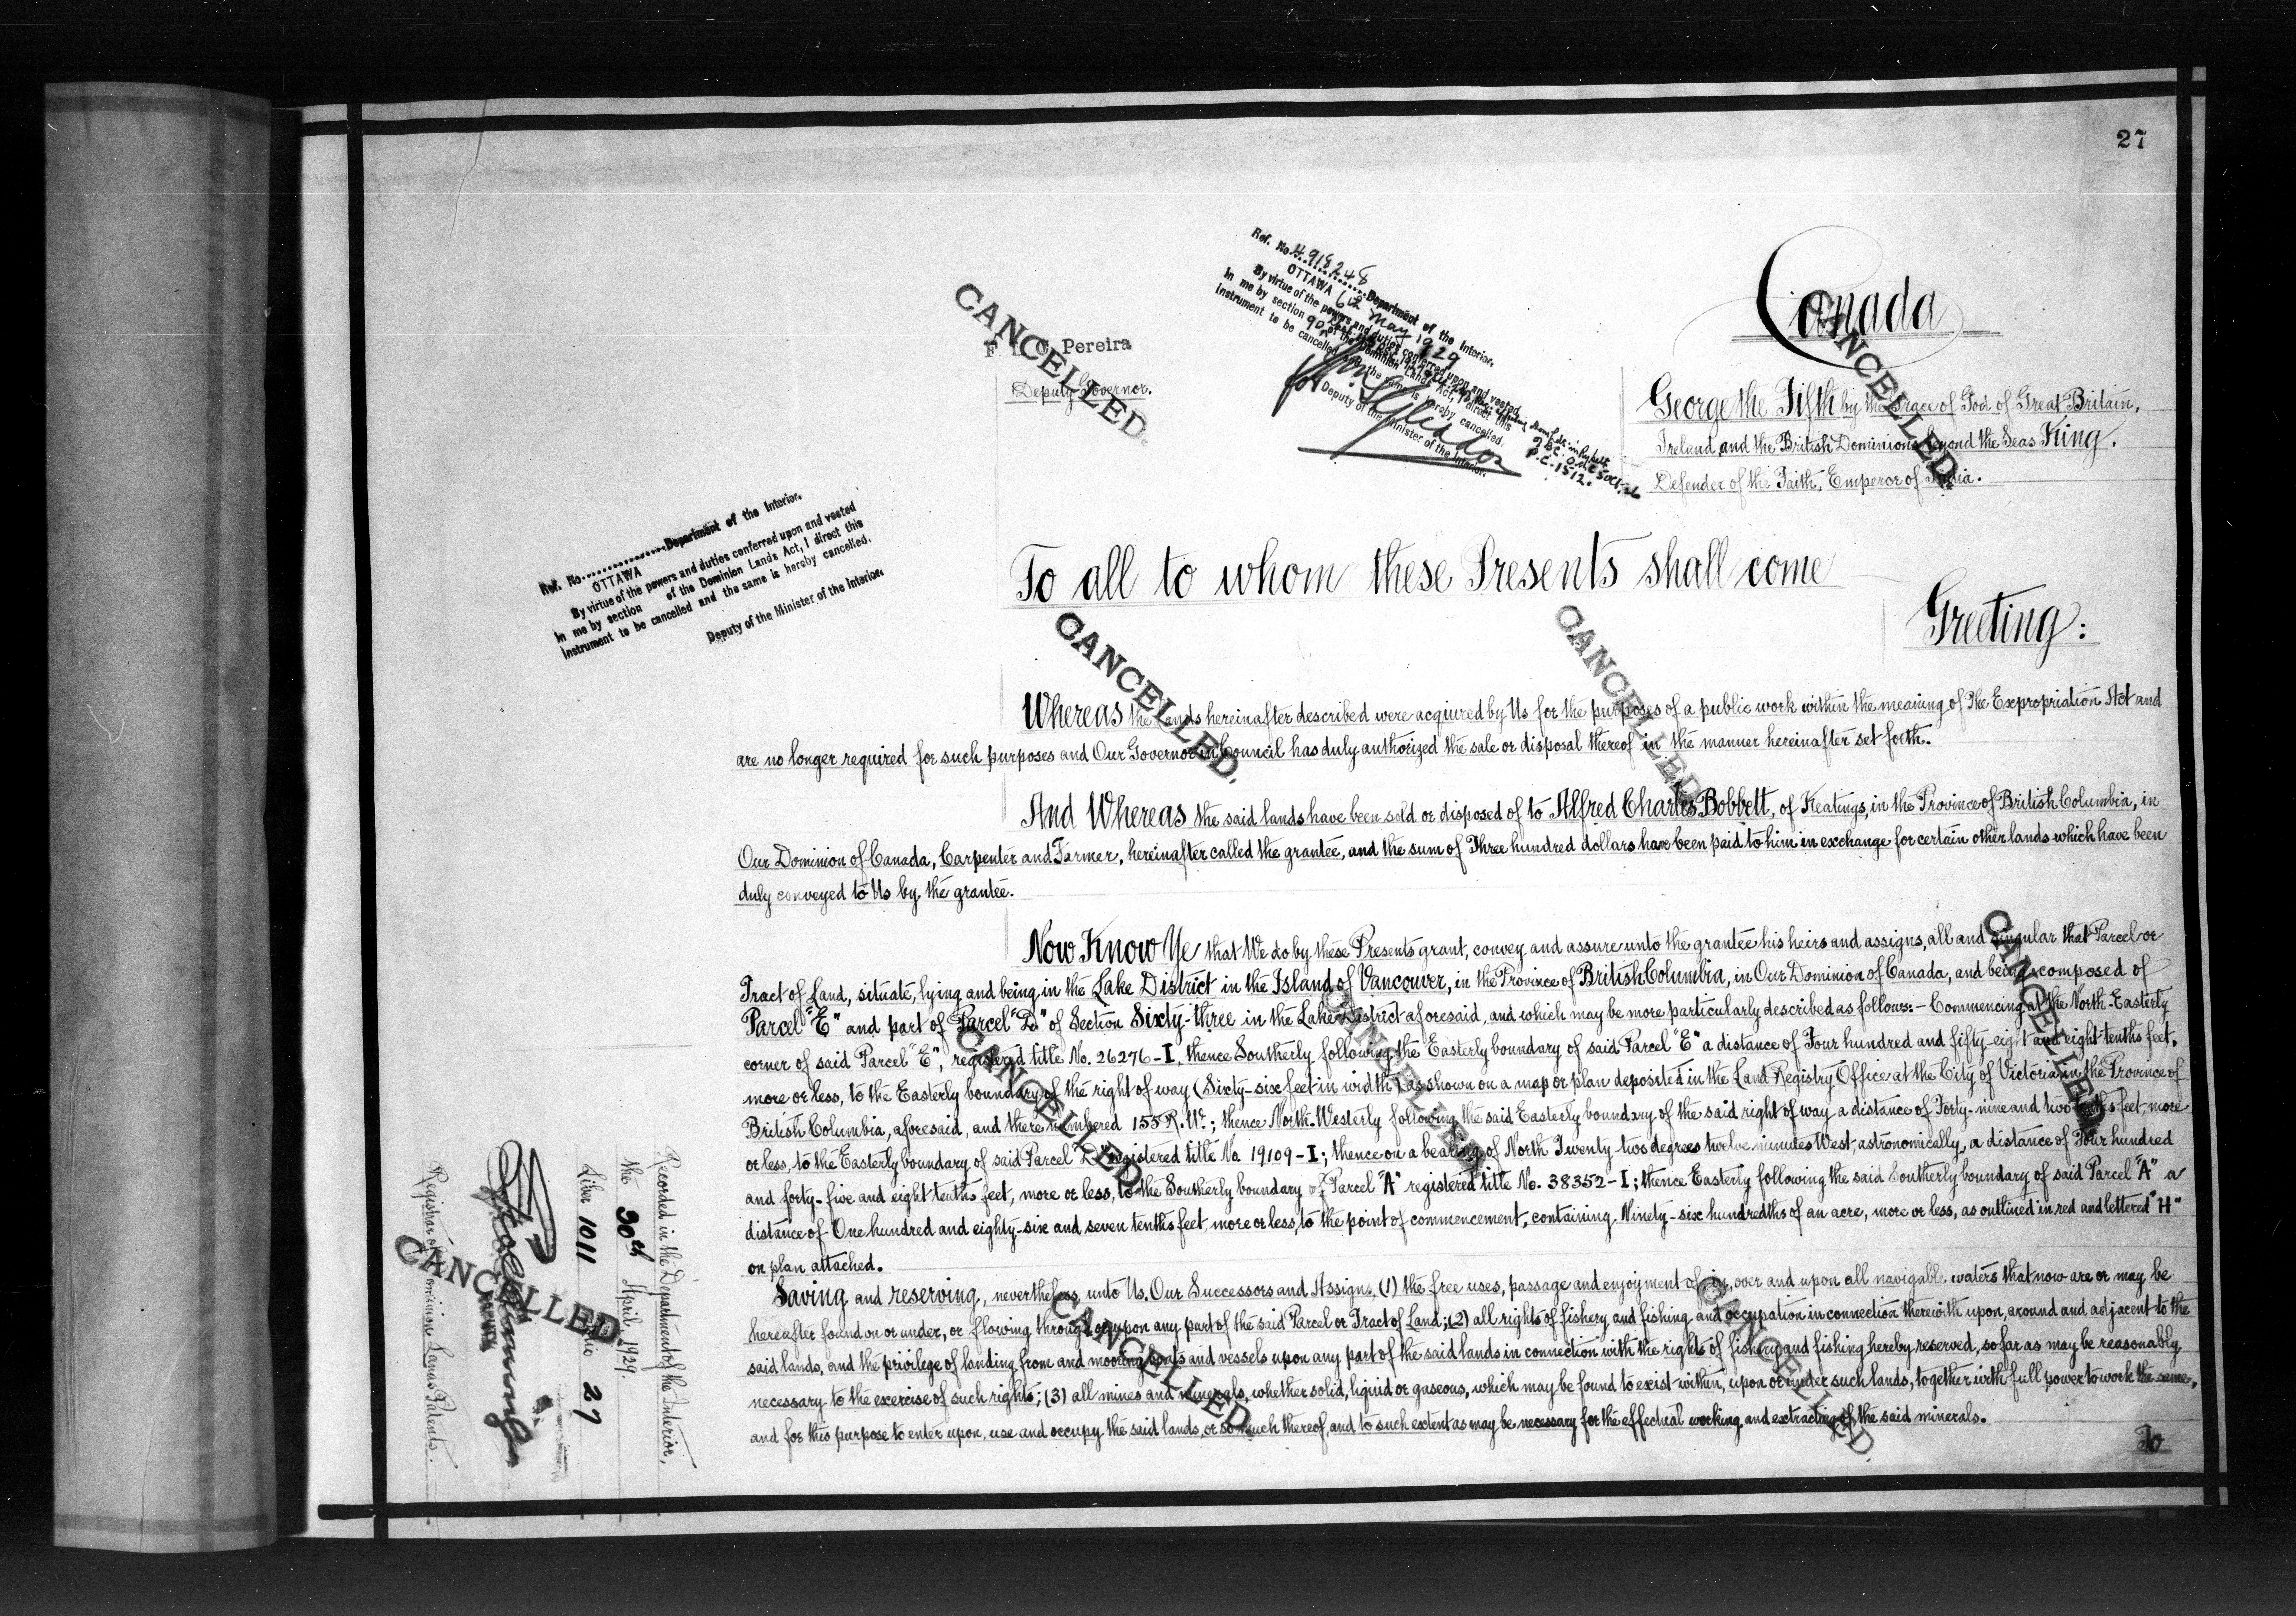 27
Canada
George the Fifth by the Grace of God of Great Britain,
Ireland and the British Dominions beyond the Seas King,
Defender of the Faith, Emperor of India.
F. C. Pereira
Deputy Governor.
CANCELLED.
CANCELLED.
Ref. No. 4918248
Department of the Interior.
OTTAWA May 1929
By virtue of the powers and duties conferred upon and vested
in me by section 90 of the Dominion Lands Act, I direct this
instrument to be cancelled and the same is hereby cancelled.
for Deputy of the Minister of the Interior.
P.C.-1512.
Ref. No. Department of the Interior.
OTTAWA
By virtue of the powers and duties conferred upon and vested
in me by section of the Dominion Lands Act, I direct this
instrument to be cancelled and the same is hereby cancelled.
Deputy of the Minister of the Interior.
To all to whom these Presents shall come
Greeting:
CANCELLED.
CANCELLED.
Whereas the lands hereinafter described were acquired by Us for the purposes of a public work within the meaning of The Expropriation Act and
are no longer required for such purposes and Our Governor in Council has duly authorized the sale or disposal thereof in the manner hereinafter set forth.
And Whereas the said lands have been sold or disposed of to Alfred Charles Bobbett, of Keatings, in the Province of British Columbia, in
Our Dominion of Canada, Carpenter and Farmer, hereinafter called the grantee, and the sum of Three hundred dollars have been paid to him in exchange for certain other lands which have been
duly conveyed to Us by the grantee.
Now Know Ye that We do by these Presents grant, convey and assure unto the grantee his heirs and assigns, all and singular that Parcel or
Tract of Land, situate, lying and being in the Lake District in the Island of Vancouver, in the Province of British Columbia, in Our Dominion of Canada, and being composed of
Parcel "E" and part of Parcel "D" of Section Sixty-three in the Lake District aforesaid, and which may be more particularly described as follows:- Commencing at the North-Easterly
corner of said Parcel "E", registered title No. 26276-I, thence Southerly following the Easterly boundary of said Parcel "E" a distance of Four hundred and fifty-eight and eight-tenths feet,
more or less, to the Easterly boundary of the right of way (Sixty-six feet in width) as shown on a map or plan deposited in the Land Registry Office at the City of Victoria in the Province of
British Columbia, aforesaid, and there numbered 155 R.W.; thence North-Westerly following the said Easterly boundary of the said right of way a distance of Forty-nine and two tenths feet, more
or less, to the Easterly boundary of said Parcel "D" registered title No. 19109-I; thence on a bearing of North Twenty-two degrees twelve minutes West, astronomically, a distance of Four hundred
and forty-five and eight tenths feet, more or less, to the Southerly boundary of Parcel "A" registered title No. 38352-I; thence Easterly following the said Southerly boundary of said Parcel "A" a
distance of One hundred and eighty-six and seven tenths feet, more or less, to the point of commencement, containing Ninety-six hundredths of an acre, more or less, as outlined in red and lettered "H"
on plan attached.
Saving and reserving, nevertheless, unto Us, Our Successors and Assigns (1) the free uses, passage and enjoyment of, in, over and upon all navigable waters that now are or may be
hereafter found on or under, or flowing through or upon any part of the said Parcel or Tract of Land; (2) all rights of fishery and fishing and occupation in connection therewith upon, around and adjacent to the
said lands, and the privilege of landing from and mooring boats and vessels upon any part of the said lands in connection with the rights of fishery and fishing hereby reserved, so far as may be reasonably
necessary to the exercise of such rights; (3) all mines and minerals, whether solid, liquid or gaseous, which may be found to exist within, upon or under such lands, together with full power to work the same,
and for this purpose to enter upon, use and occupy the said lands, or so much thereof, and to such extent as may be necessary for the effectual working and extracting of the said minerals.
To
CANCELLED.
CANCELLED.
CANCELLED.
CANCELLED.
CANCELLED.
Recorded in the Department of the Interior,
the 30th April 1929.
Liber 1011 Folio 27
Registrar of Dominion Lands Patents.
CANCELLED.